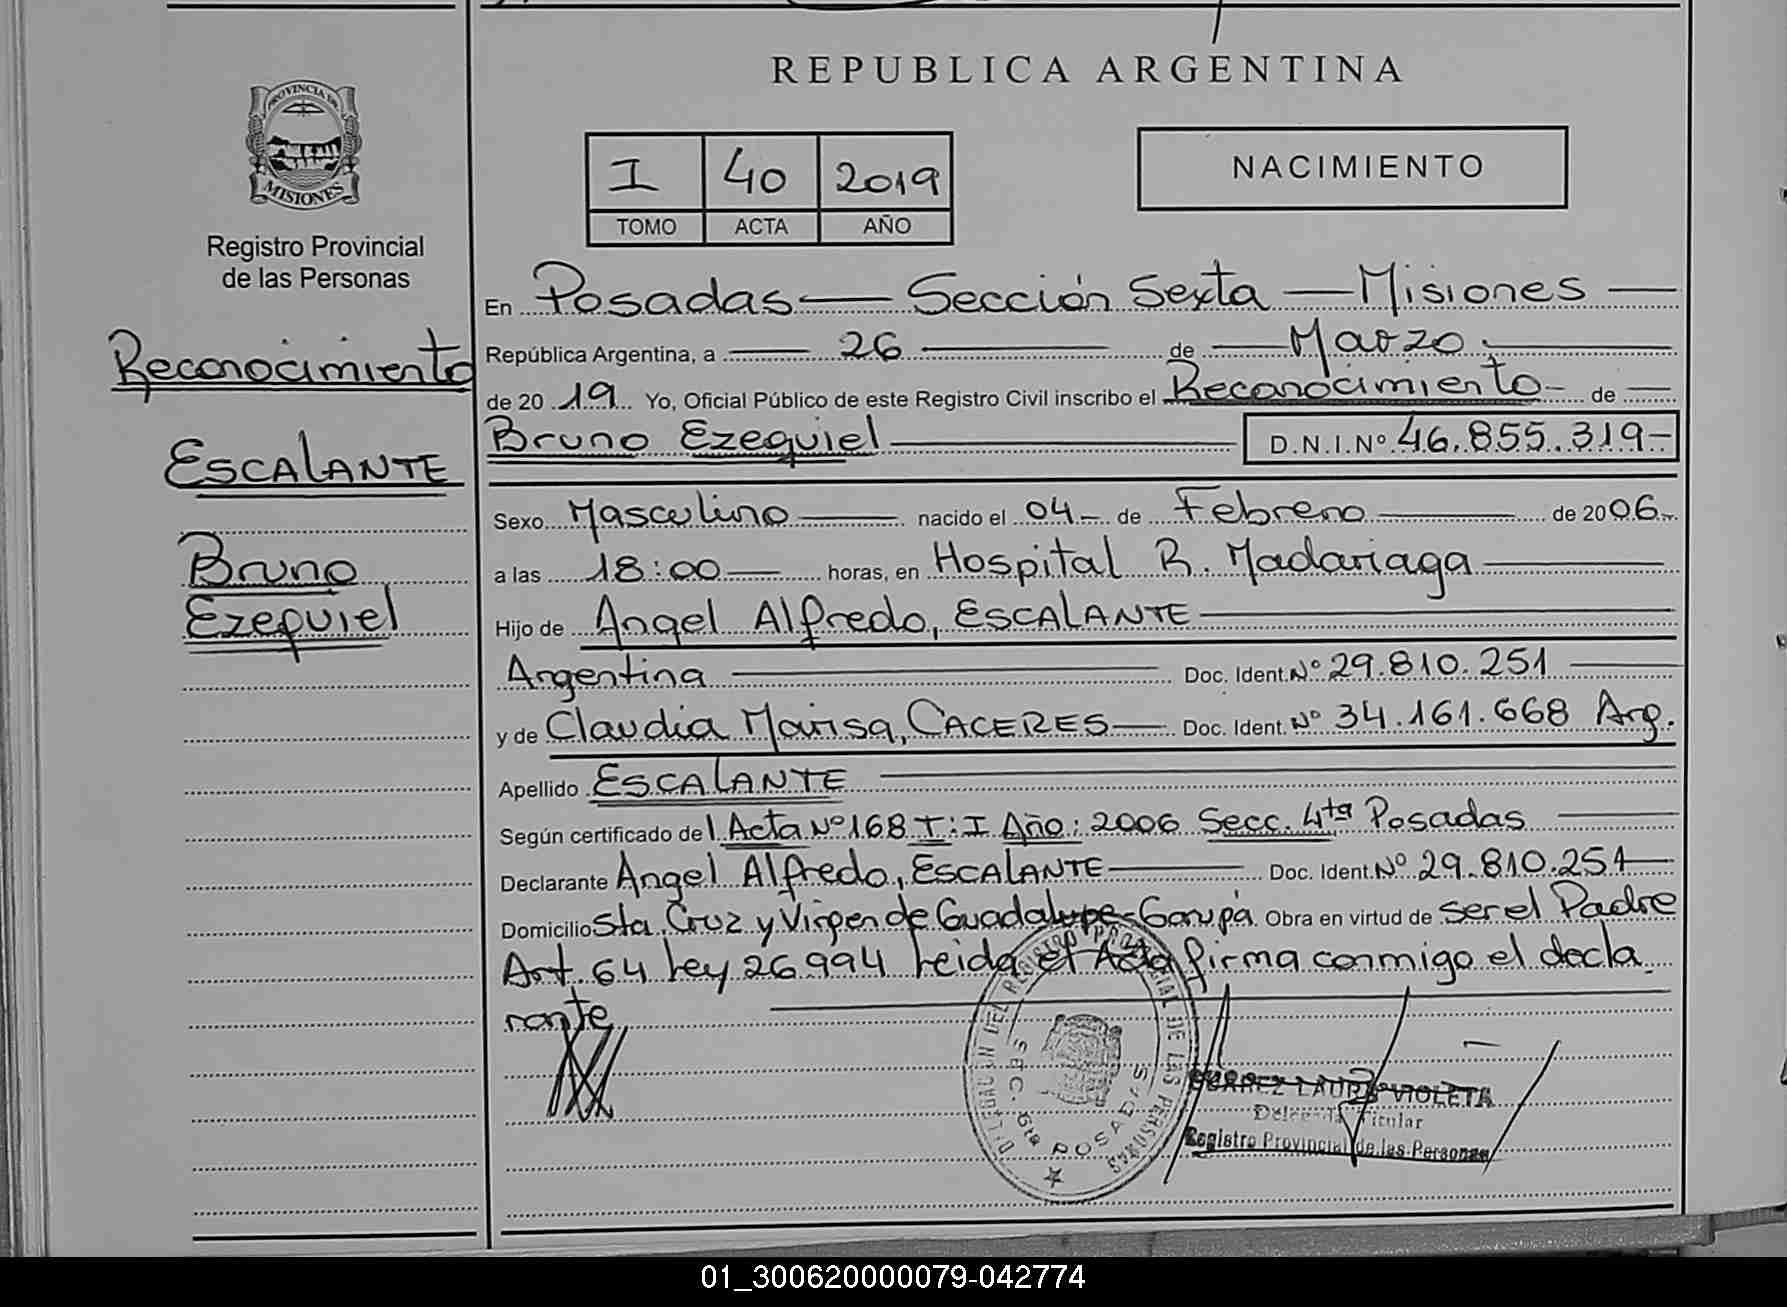 REPUBLICA ARGENTINA
PROVINCIA DE
MISIONES
Registro Provincial
de las Personas
I 40 2019
TOMO ACTA AÑO
NACIMIENTO
Reconocimiento
ESCALANTE
Bruno
Ezequiel
En Posadas — Sección Sexta — Misiones —
República Argentina, a — 26 — de — Marzo —
de 20 19 Yo, Oficial Público de este Registro Civil inscribo el Reconocimiento - de —
Bruno Ezequiel — D.N.I.Nº 46.855.319-
Sexo Masculino — nacido el 04- de Febrero — de 2006-
a las 18:00 — horas, en Hospital R. Madariaga —
Hijo de Angel Alfredo, ESCALANTE —
Argentina — Doc. Ident. Nº 29.810.251 —
y de Claudia Marisa, CACERES — Doc. Ident. Nº 34.161.668 Arg.
Apellido ESCALANTE —
Según certificado del Acta Nº 168 T: I Año: 2006 Secc. 4ta Posadas —
Declarante Angel Alfredo, ESCALANTE — Doc. Ident. Nº 29.810.251 —
Domicilio Sta. Cruz y Virgen de Guadalupe - Garupá Obra en virtud de ser el Padre
Art. 64 Ley 26994 Leida el Acta firma conmigo el decla
rante
DELEGACIÓN DEL REGISTRO PROVINCIAL DE LAS PERSONAS
SEC. 6ta POSADAS
SUAREZ LAURA VIOLETA
Titular
Registro Provincial de las Personas
01_300620000079-042774